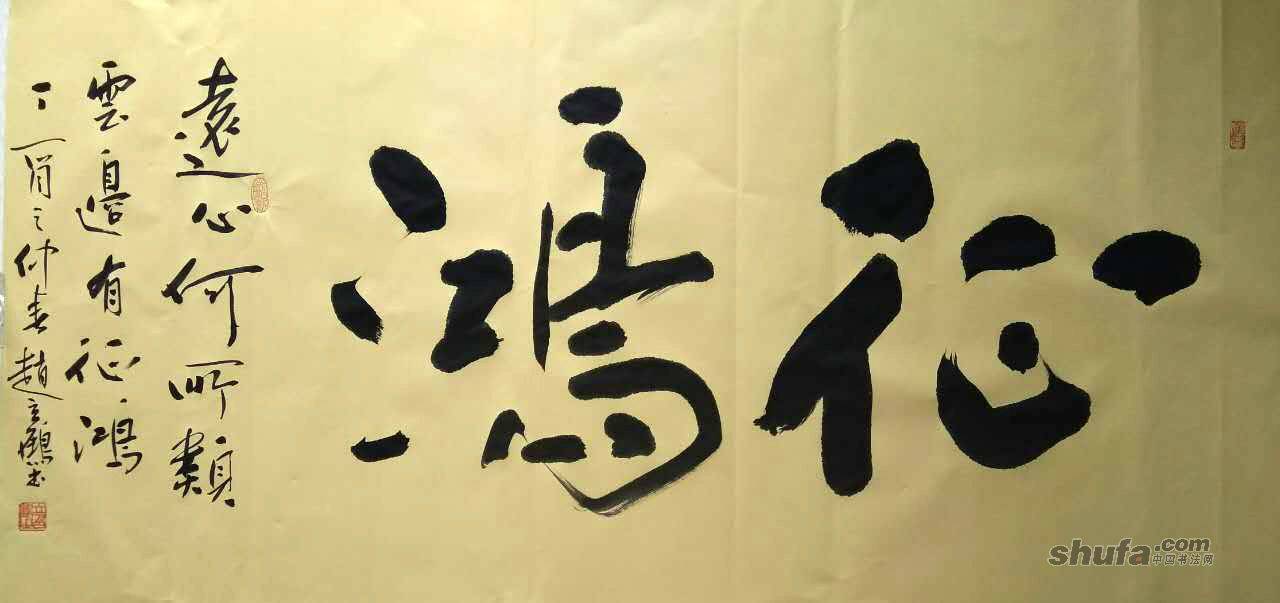 征鴻
遠心何所類
雲邊有征鴻
丁酉之仲春趙立
shufa.com
中国书法网